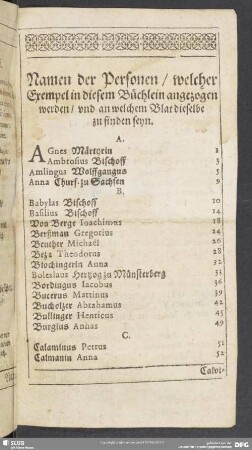 Namen der Personen / welcher
Exempel in diesem Büchlein angezogen
werden / vnd an welchem Blat dieselbe
zu finden seyn.
A.
AGnes Märtyrin 1
Ambrosius Bischoff 3
Amlingus Wolffgangus 5
Anna Churf. zu Sachsen 9
B.
Babylas Bischoff 10
Basilius Bischoff 14
Von Berge Ioachimus 18
Berßman Gregorius 24
Beuther Michael 26
Beza Theodorus 28
Blochingerin Anna 32
Boleslaus Hertzog zu Münsterberg 33
Bordingus Iacobus 36
Bucerus Martinus 39
Bucholzer Abrahamus 42
Bullinger Henricus 45
Burgius Annas 49
C.
Calaminus Petrus 51
Calmanin Anna 52
Calvi-
SLUB
DFG